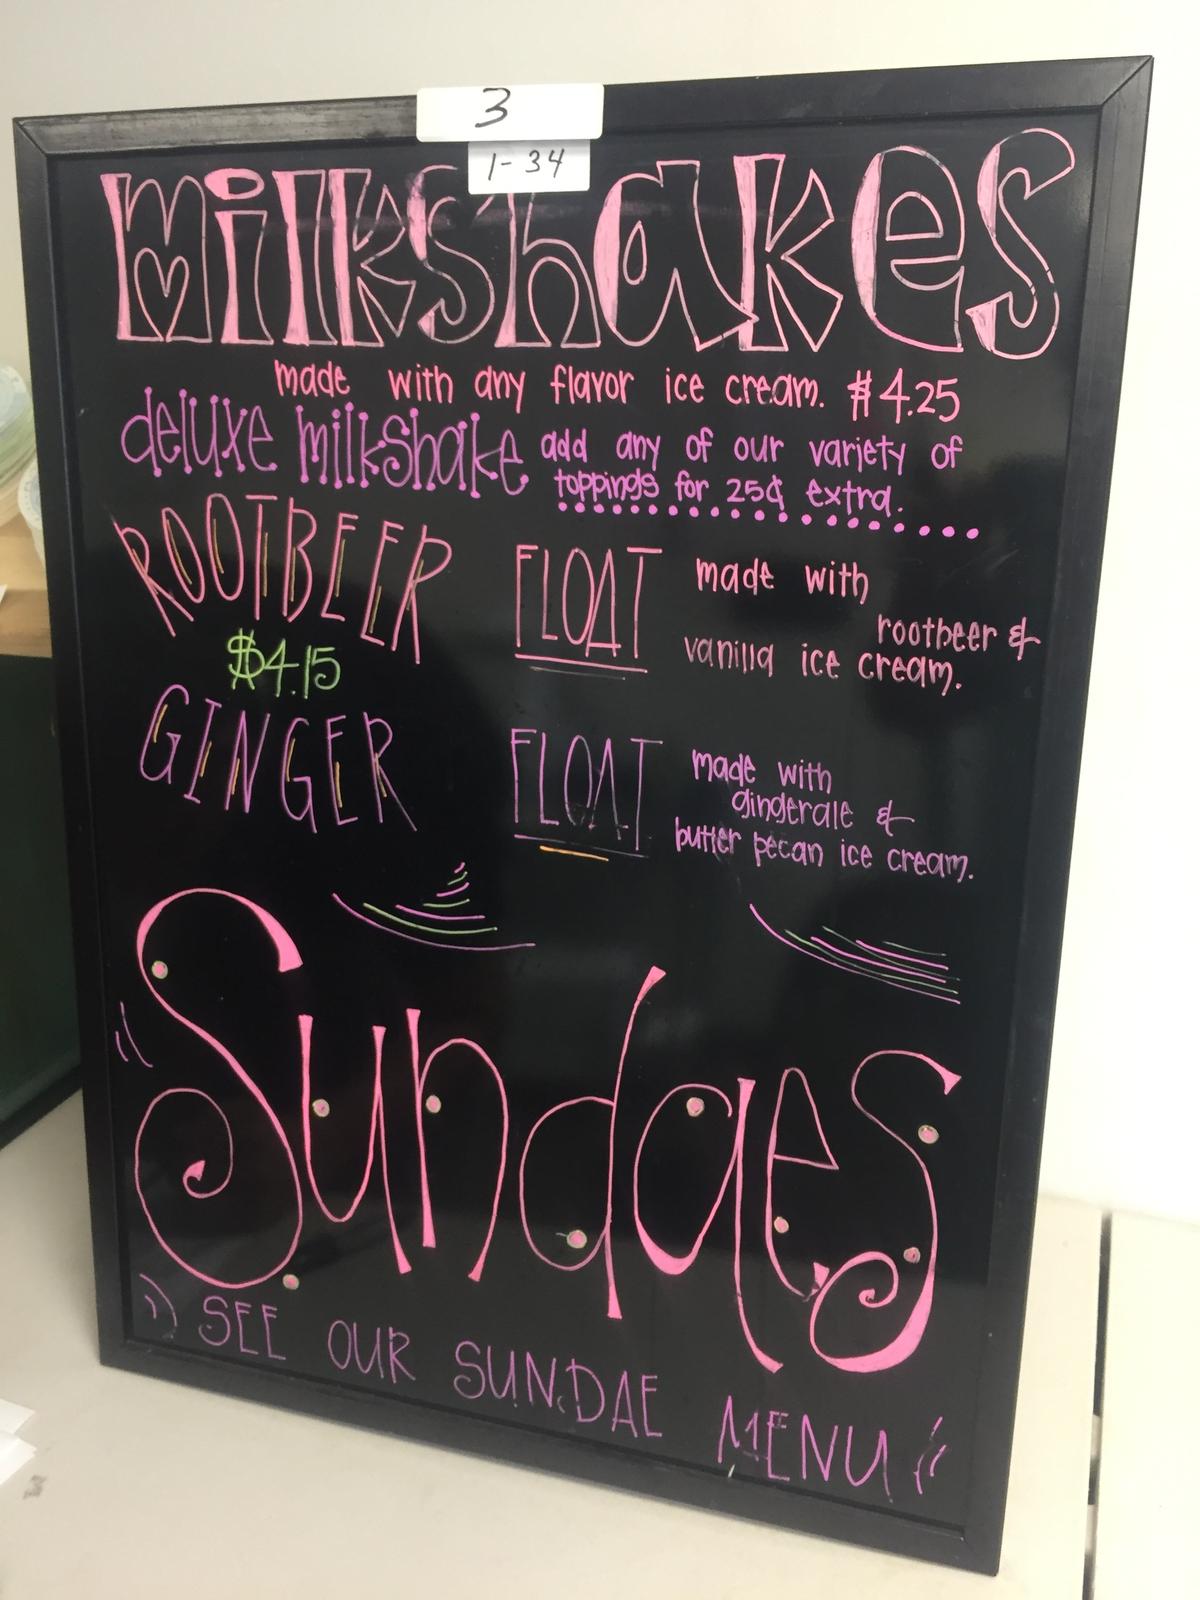 3
1-34
milkshakes
made with any flavor ice cream. $4.25
deluxe milkshake add any of our variety of
toppings for 25¢ extra.
ROOTBEER FLOAT made with
rootbeer &
vanilla ice cream.
$4.15
GINGER FLOAT made with
gingerale &
butter pecan ice cream.
Sundaes
SEE OUR SUNDAE MENU